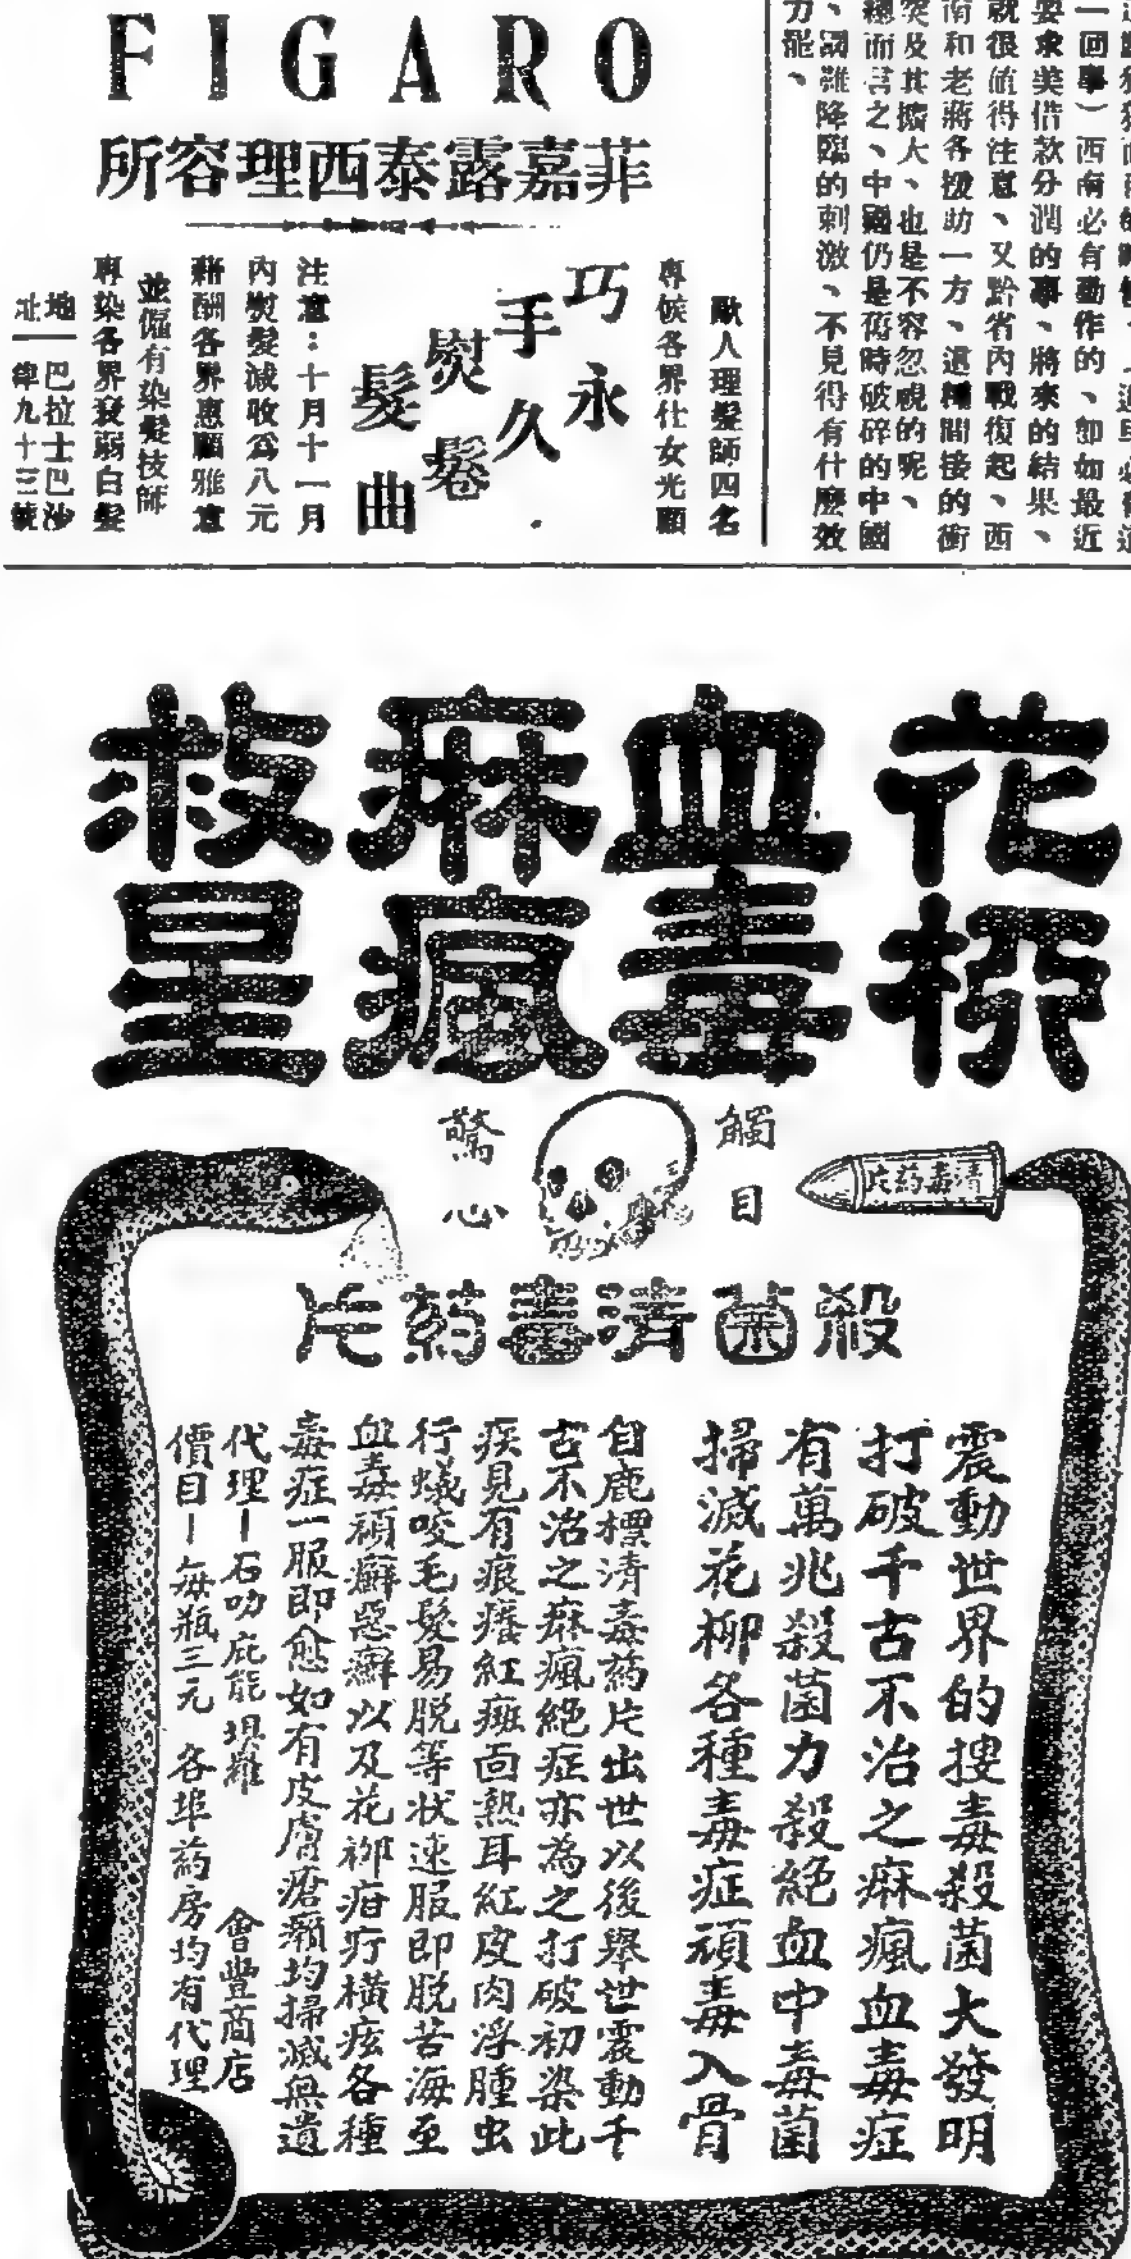 FIGARO
菲嘉露泰西理容所
歐人理髮師四名
專候各界仕女光顧
巧手熨髮
永久鬈曲
注意：十月十一月
內熨髮減收爲八元
藉酬各界惠顧雅意
並僱有染髮技師
專染各界衰弱白髮
地址—巴拉士巴沙
律九十三號
一回事）西南必有動作的、卽如最近
要求美借款分潤的事、將來的結果、
就很值得注意、又黔省內戰復起、西
南和老蔣各援助一方、這種間接的衝
突及其擴大、也是不容忽視的呢、
總而言之、中國仍是舊時破碎的中國
、國難降臨的刺激、不見得有什麼效
力罷、
花柳
血毒
麻瘋
救星
觸目
驚心
清毒药片
殺菌清毒药片
震動世界的搜毒殺菌大發明
打破千古不治之痳瘋血毒症
有萬兆殺菌力殺絕血中毒菌
掃滅花柳各種毒症頑毒入骨
自鹿標清毒药片出世以後舉世震動千
古不治之痳瘋絕症亦為之打破初染此
疾見有痕癢紅斑面熱耳紅皮肉浮腫虫
行蟻咬毛髮易脫等状速服即脫苦海至
血毒頑癬惡癬以及花柳疳疔橫痃各種
毒症一服即愈如有皮膚瘡癩均掃滅無遺
代理—石叻庇能垻羅 會豐商店
價目—每瓶三元 各埠药房均有代理